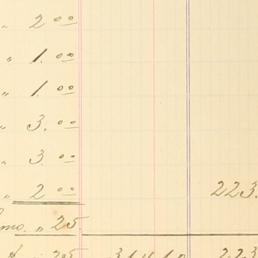 " 2 00
" 1. 00
" 1 00
" 3. 00
" 3 00
" 2 00 223.
mo. " 25.